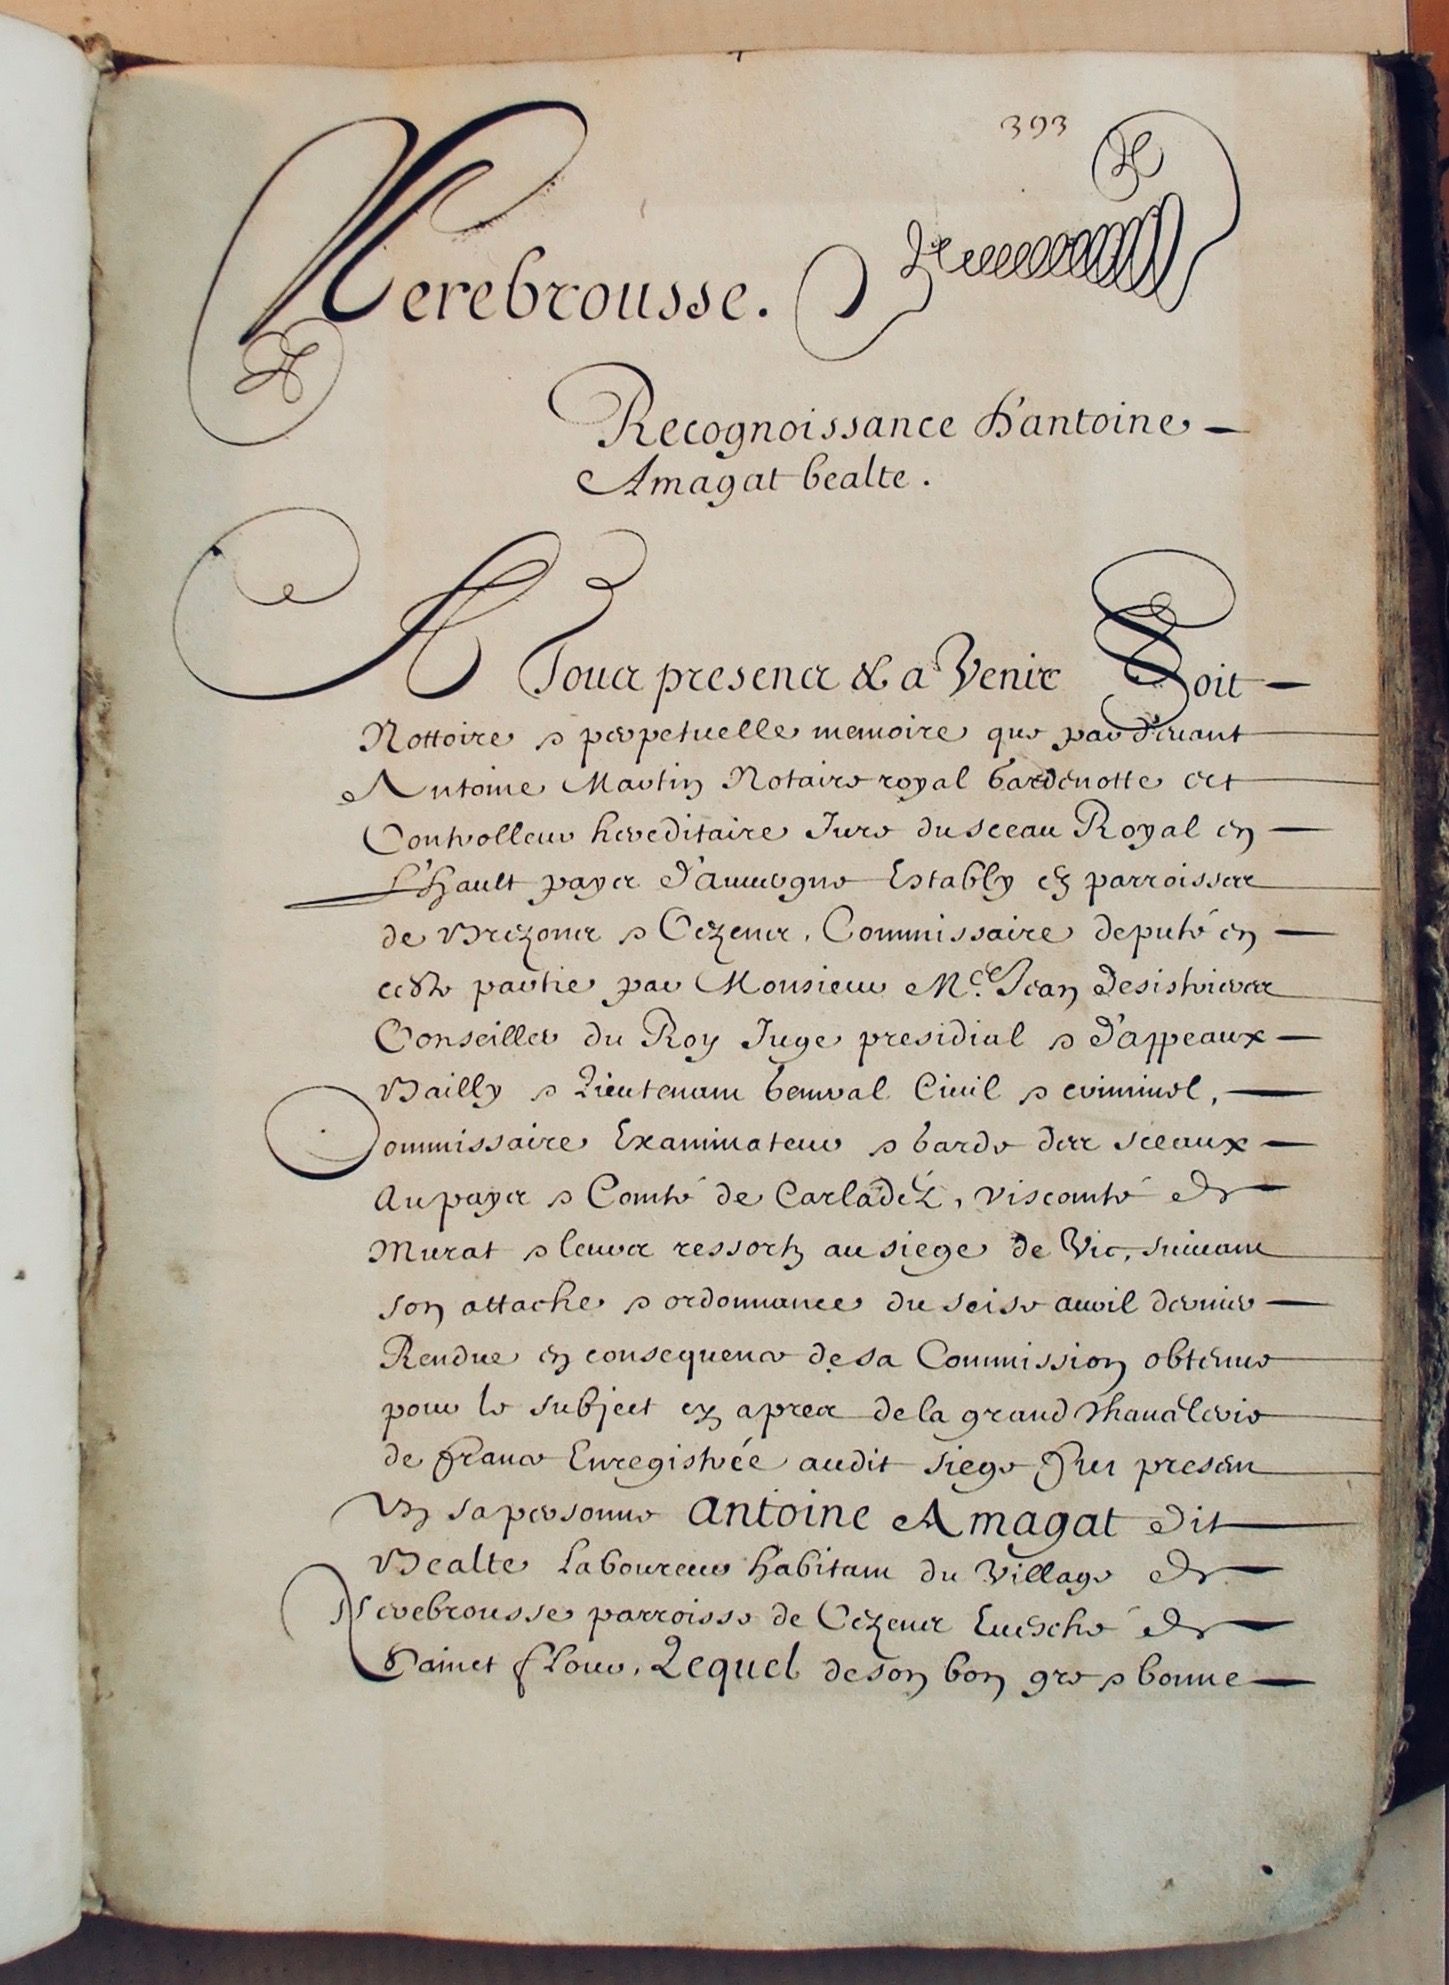 393
Nerebrousse.
Recognoissance d'antoine
Amagat bealte.
A Tous presens & a Venir Soit
Nottoire & perpetuelle memoire que par devant
Antoine Martin Notaire royal gardenotte et
Controlleur hereditaire Jure du sceau Royal en
l'hault payis d'auvergne Estably ez parroisses
de Brezons & Cezens, Commissaire deputé en
ceste partie par Monsieur Me. Jean Desistrieres
Conseiller du Roy Juge presidial & d'appeaux
Bailly & Lieutenant General Civil & criminel,
Commissaire Examinateur & garde des sceaux
Au payis & Comté de Carladéz, viscomté de
Murat & leurs ressortz au siege de Vic, suivant
son attache & ordonnance du seise avril dernier
Rendue en consequence de sa Commission obtenue
pour le subject cy apres de la grand Chancelerie
de france Enregistrée audit siege fut present
En sa personne Antoine Amagat dit
Bealte Laboureur habitant du Village de
Nerebrousse parroisse de Cezens Evesché de
Sainct flour, Lequel de son bon gre & bonne